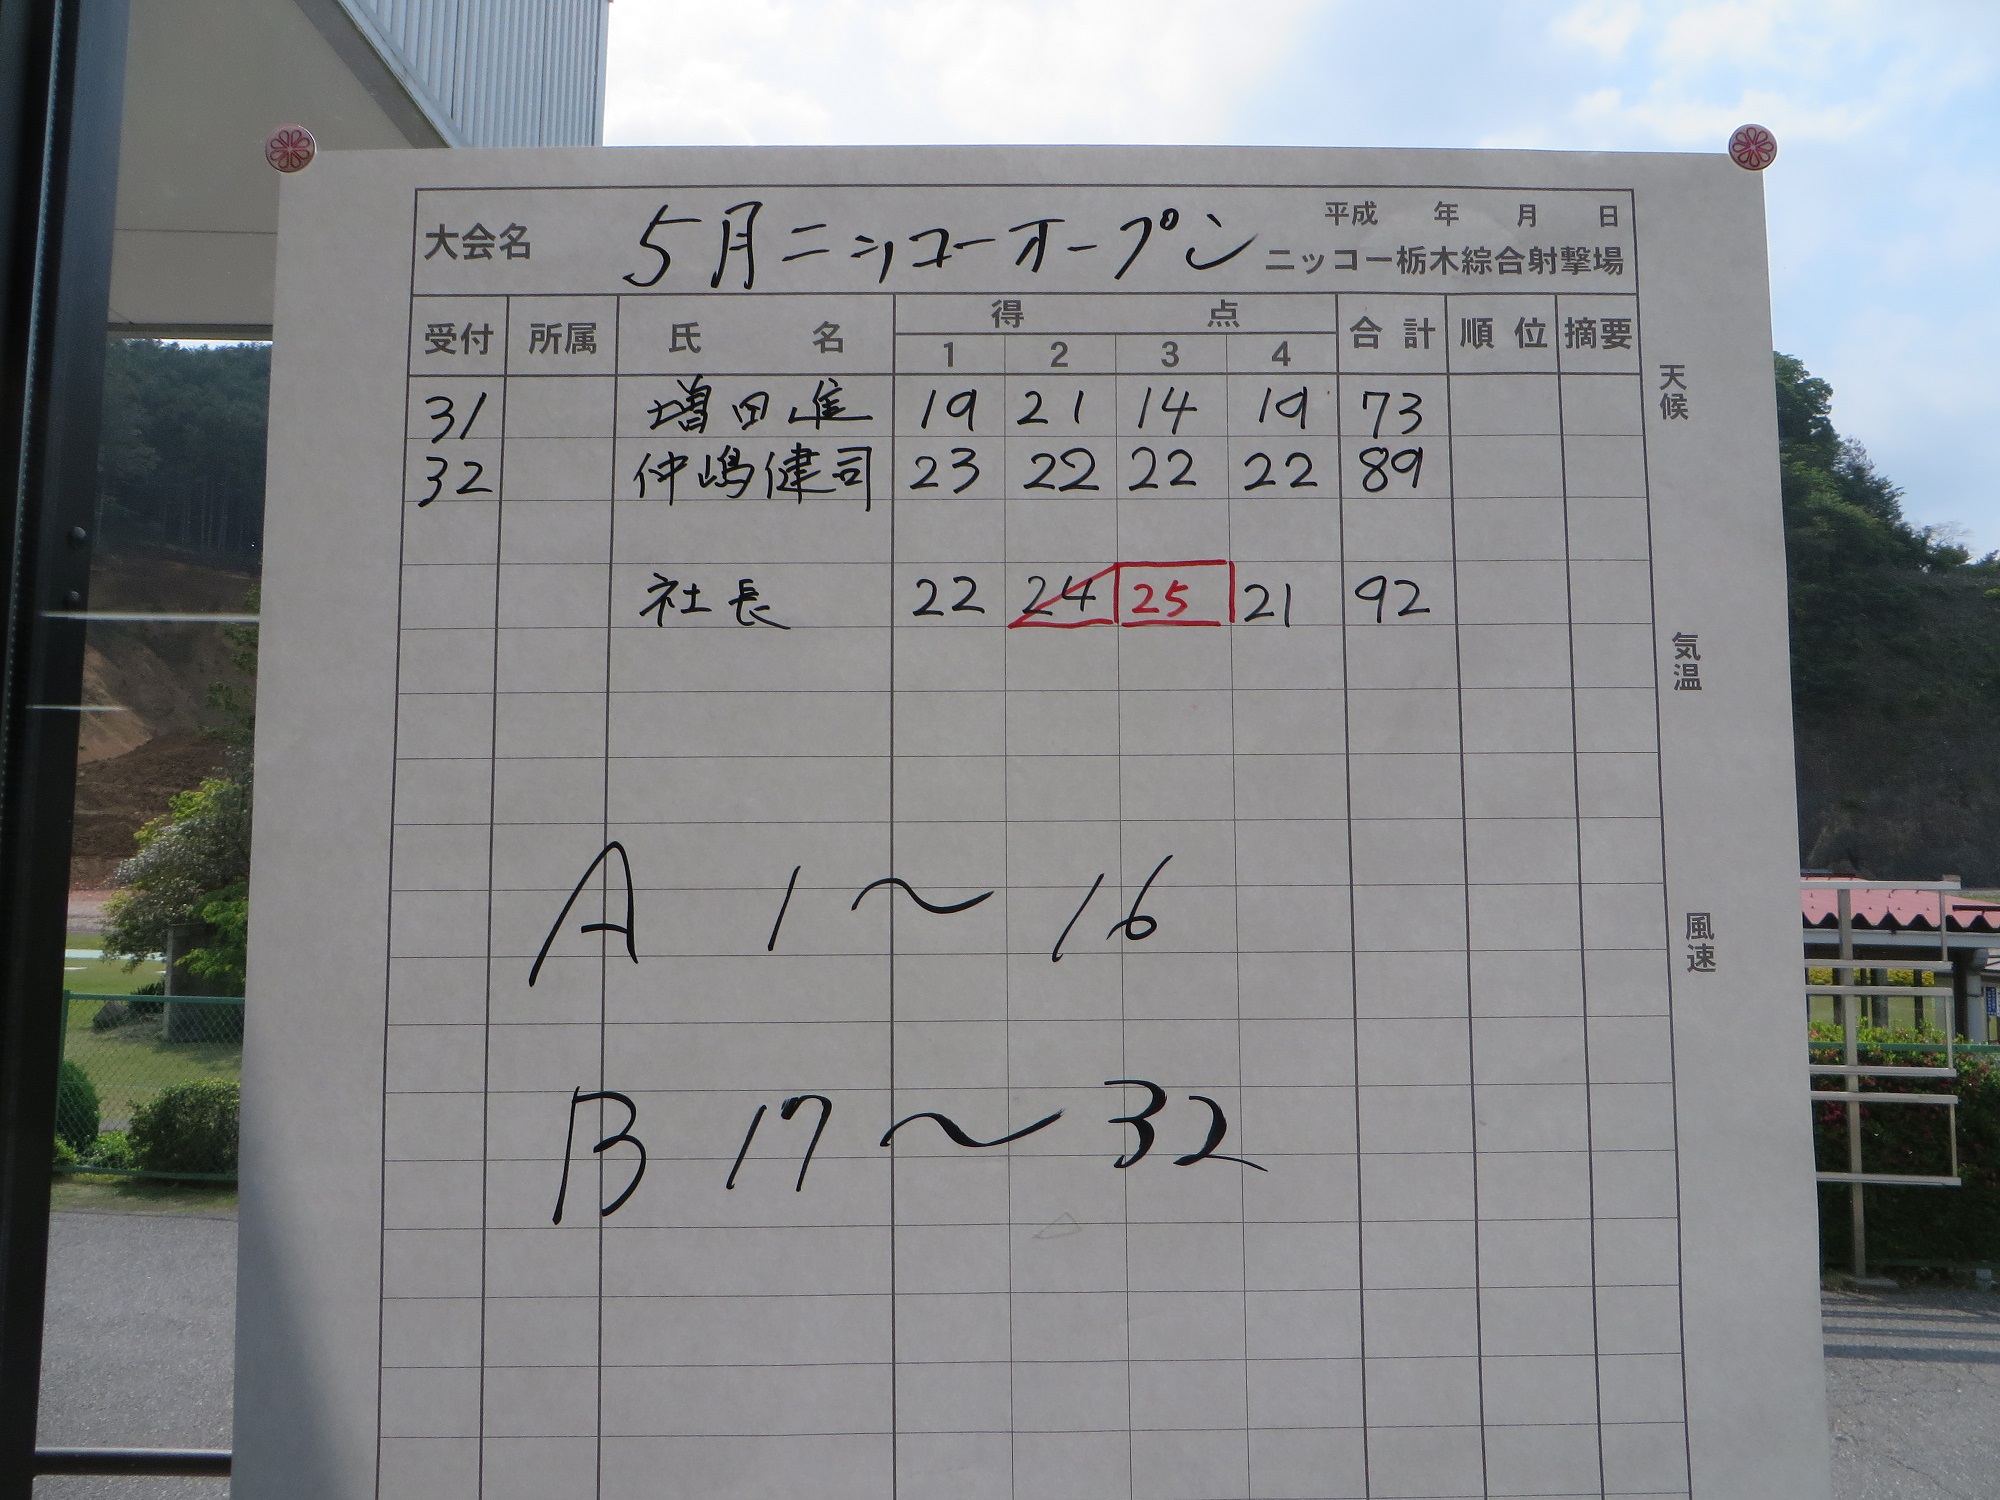 平成 年 月 日
大会名 5月ニッコーオープン ニッコー栃木綜合射撃場
受付 所属 氏 名 得 点 合 計 順 位 摘要
1 2 3 4
31 増田進 19 21 14 19 73
32 仲嶋健司 23 22 22 22 89
社長 22 24 25 21 92
A 1〜16
B 17〜32
天候
気温
風速